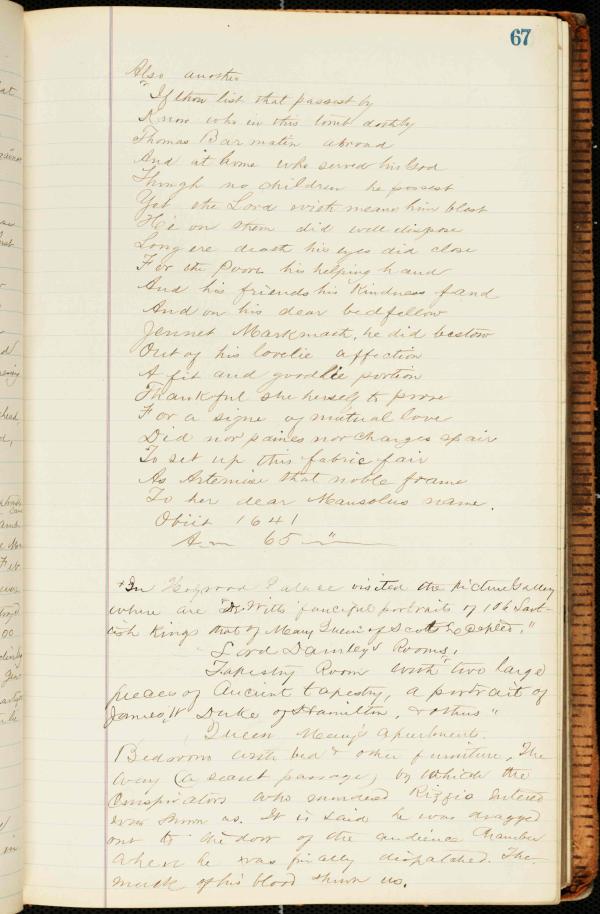 67
Also another
"If thou list that passest by
Know who in this tomb doth ly
Thomas Bannatin abroad
And at home who served his God
Though no children he possest
Yet the Lord with means him blest
He on them did well dispose
Long ere death his eyes did close
For the Poore his helping hand
And his friends his Kindness fand
And on his dear bedfellow
Jennet Markmath, he did bestow
Out of his lovelie affection
A fit and goodlie portion
Thankful she herself to prove
For a signe of mutual love
Did nor paines nor charges spair
To set up this fabric fair
As Artemise that noble frame
To her dear Mausolus name.
Obiit 1641
65 "
"In Palace visited the Picture Gallery
where are "De Witts fanciful portraits of 106 Scot-
ish Kings that of Mary Queen of Scots Excepted."
Lord Darnley's Rooms,
Tapestry Room with "two large
pieces of Ancient tapestry, a portrait of
James, Duke of Hamilton, & others"
Queen Mary's Apartments.
Bedroom with bed & other furniture, The
way (a secret passage) by which the
Conspirators who murdered Rizzio Entered
were shown us. It is said he was dragged
out to the door of the audience Chamber
where he was finally dispatched. The
mark of his blood shown us.